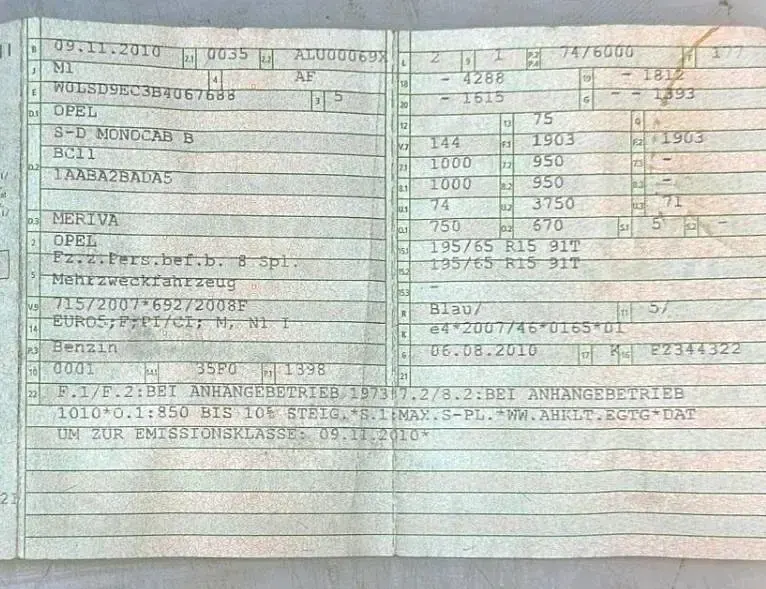 B 09.11.2010 2.1 0035 2.2 ALU00069X
J M1 4 AF
E W0LSD9EC3B4067688 3 5
D.1 OPEL
S-D MONOCAB B
D.2 BC11
1AABA2BADA5
D.3 MERIVA
2 OPEL
5 Fz.z.Pers.bef.b. 8 Spl.
Mehrzweckfahrzeug
V.9 715/2007*692/2008F
14 EURO5;F;PI/CI; M, N1 I
P.3 Benzin
10 0001 14.1 35F0 P.1 1398
22 F.1/F.2:BEI ANHANGEBETRIEB 1973*7.2/8.2:BEI ANHANGEBETRIEB
1010*O.1:850 BIS 10% STEIG.*S.1:MAX.S-PL.*WW.AHKLT.EGTG*DAT
UM ZUR EMISSIONSKLASSE: 09.11.2010*
L 2 9 1 P.2 P.4 74/6000 T 177
18 - 4288 19 - 1812
20 - 1615 G - - 1393
12 13 75 Q -
V.7 144 F.1 1903 F.2 1903
7.1 1000 7.2 950 7.3 -
8.1 1000 8.2 950 8.3 -
U.1 74 U.2 3750 U.3 71
O.1 750 O.2 670 S.1 5 S.2 -
15.1 195/65 R15 91T
15.2 195/65 R15 91T
15.3 -
R Blau/ 11 5/
K e4*2007/46*0165*01
6 06.08.2010 17 K 16 EZ344322
21